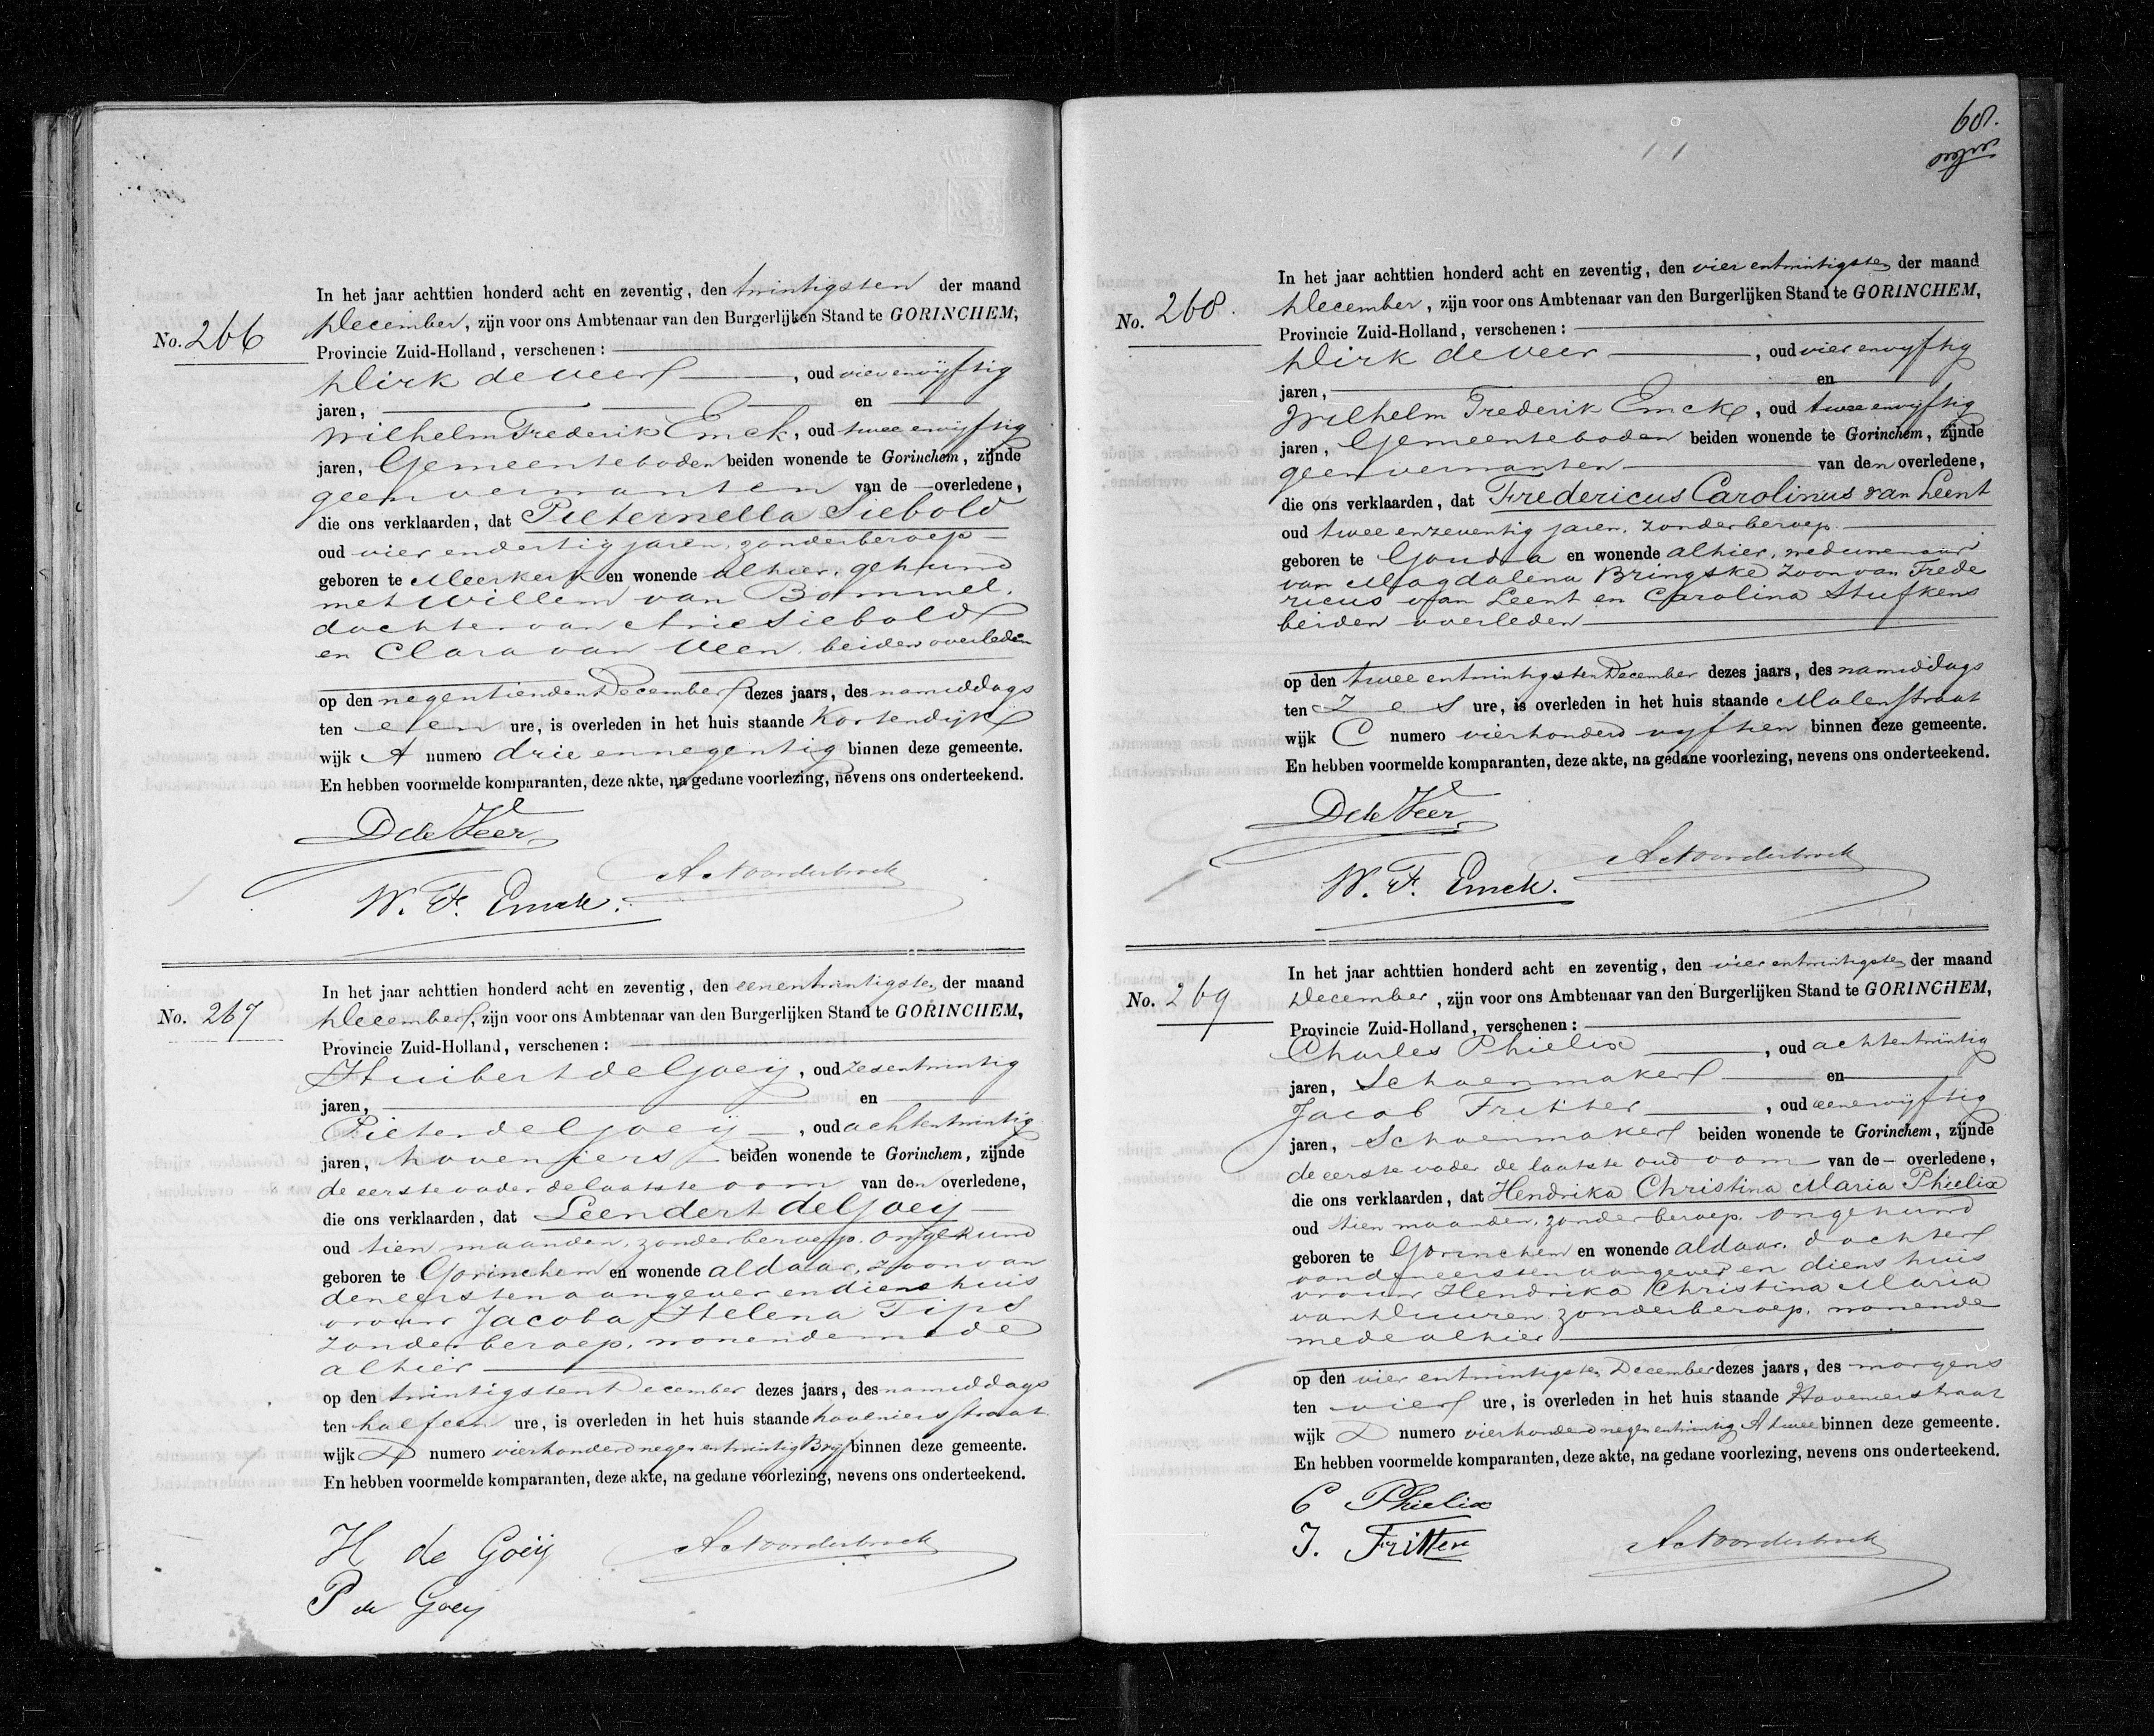 In het jaar achttien honderd acht en zeventig, den twintigsten der maand
No. 266 December, zijn voor ons Ambtenaar van den Burgerlijken Stand te GORINCHEM,
Provincie Zuid-Holland, verschenen:
Dirk de Veer, oud vier en vyftig
jaren, en
Wilhelm Frederik Emck, oud twee en vyftig
jaren, Gemeenteboden beiden wonende te Gorinchem, zijnde
geen verwanten van de overledene,
die ons verklaarden, dat Pieternella Siebold
oud vier en dertig jaren, zonder beroep
geboren te Meerkerk en wonende alhier, gehuwd
met Willem van Bommel,
dochter van Arie Siebold
en Clara van Veen, beiden overleden
op den negentienden December dezes jaars, des namiddags
ten een ure, is overleden in het huis staande Kortendijk
wijk A numero drie en negentig binnen deze gemeente.
En hebben voormelde komparanten, deze akte, na gedane voorlezing, nevens ons onderteekend.
D de Veer
A Noorderbroek
W. F. Emck.
In het jaar achttien honderd acht en zeventig, den een en twintigsten der maand
No. 267 December, zijn voor ons Ambtenaar van den Burgerlijken Stand te GORINCHEM,
Provincie Zuid-Holland, verschenen:
Huibert de Goeij, oud zes en twintig
jaren, en
Pieter de Goeij, oud acht en twintig
jaren, hoveniers beiden wonende te Gorinchem, zijnde
de eerste vader de laatste oom van den overledene,
die ons verklaarden, dat Leendert de Goeij
oud tien maanden, zonder beroep, ongehuwd
geboren te Gorinchem en wonende aldaar, zoon van
den eersten aangever en diens huis
vrouw Jacoba Helena Tips
zonder beroep, wonende mede
alhier
op den twintigsten December dezes jaars, des namiddags
ten half een ure, is overleden in het huis staande hoveniersstraat
wijk D numero vierhonderd negen en twintig B vyf binnen deze gemeente.
En hebben voormelde komparanten, deze akte, na gedane voorlezing, nevens ons onderteekend.
H de Goeÿ
A Noorderbroek
P de Goeij
68.
In het jaar achttien honderd acht en zeventig, den vier en twintigsten der maand
No. 268. December, zijn voor ons Ambtenaar van den Burgerlijken Stand te GORINCHEM,
Provincie Zuid-Holland, verschenen:
Dirk de Veer, oud vier en vyftig
jaren, en
Wilhelm Frederik Emck, oud twee en vyftig
jaren, Gemeenteboden beiden wonende te Gorinchem, zijnde
geen verwanten van den overledene,
die ons verklaarden, dat Fredericus Carolinus van Leent
oud twee en zeventig jaren, zonder beroep
geboren te Gouda en wonende alhier, weduwenaar
van Magdalena Bringske zoon van Frede
ricus van Leent en Carolina Stufkens
beiden overleden
op den twee en twintigsten December dezes jaars, des namiddags
ten Zes ure, is overleden in het huis staande Molenstraat
wijk C numero vierhonderd vyftien binnen deze gemeente.
En hebben voormelde komparanten, deze akte, na gedane voorlezing, nevens ons onderteekend.
D de Veer
A Noorderbroek
W. F. Emck.
In het jaar achttien honderd acht en zeventig, den vier en twintigsten der maand
No. 269 December, zijn voor ons Ambtenaar van den Burgerlijken Stand te GORINCHEM,
Provincie Zuid-Holland, verschenen:
Charles Phielix, oud acht en twintig
jaren, Schoenmaker en
Jacob Fritter, oud een en vyftig
jaren, Schoenmaker beiden wonende te Gorinchem, zijnde
de eerste vader de laatste oud oom van de overledene,
die ons verklaarden, dat Hendrika Christina Maria Phielix
oud tien maanden, zonder beroep, ongehuwd
geboren te Gorinchem en wonende aldaar, dochter
van den eersten aangever en diens huis
vrouw Hendrika Christina Maria
van Duuren zonder beroep, wonende
mede alhier
op den vier en twintigsten December dezes jaars, des morgens
ten vier ure, is overleden in het huis staande Hovenierstraat
wijk D numero vierhonderd negen en twintig A twee binnen deze gemeente.
En hebben voormelde komparanten, deze akte, na gedane voorlezing, nevens ons onderteekend.
C Phielix
J. Fritter
A Noorderbroek